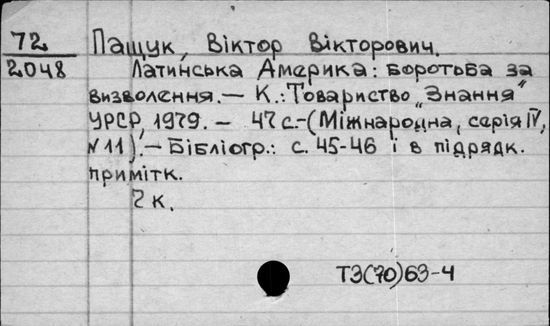 72
2048
Пащук, Віктор Вікторович.
Латинська Америка: боротьба за
визволення.— К.: Товариство „Знання"
УРСР, 1979. — 47 с.-(Міжнародна, серія IV,
N 11).— Бібліогр.: с. 45-46 і в підрядк.
примітк.
2 к.
Т3(70)63-4